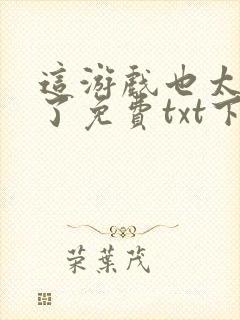 這游戲也太
了免費txt下
荣葉茂